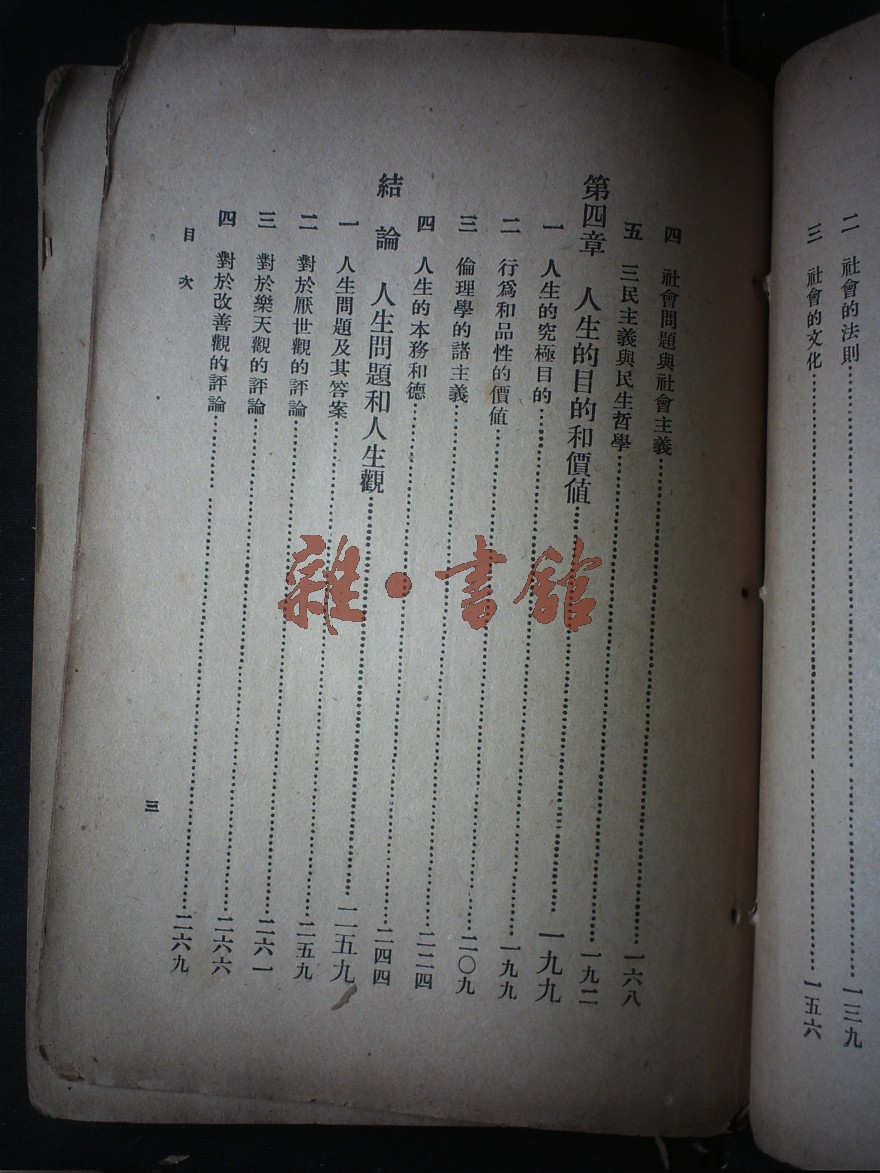 二 社會的法則……一三九
三 社會的文化……一五六
四 社會問題與社會主義……一六八
五 三民主義與民生哲學……一九二
第四章 人生的目的和價值……一九九
一 人生的究極目的……一九九
二 行爲和品性的價値……二〇九
三 倫理學的諸主義……二二四
四 人生的本務和德……二四四
結論 人生問題和人生觀……二五九
一 人生問題及其答案……二五九
二 對於厭世觀的評論……二六一
三 對於樂天觀的評論……二六六
四 對於改善觀的評論……二六九
目次
三
雜·書館